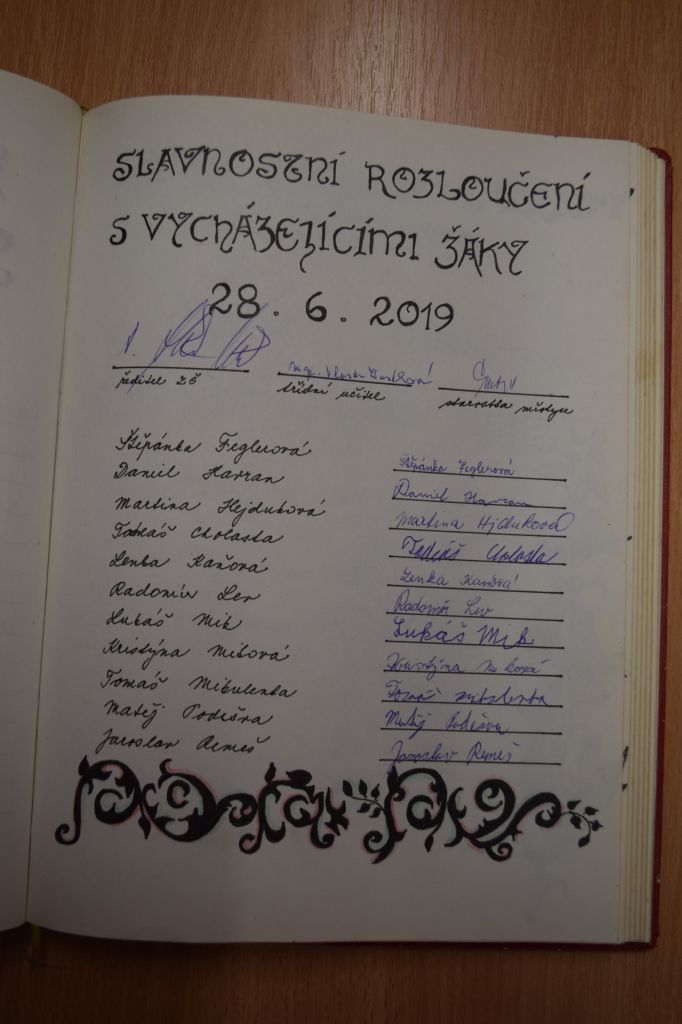 SLAVNOSTNÍ ROZLOUČENÍ
S VYCHÁZEJÍCÍMI ŽÁKY
28. 6. 2019
Ing.
ředitel ZŠ třídní učitel starostka městyse
Štěpánka Feglerová Štěpánka Feglerová
Daniel Harran Daniel Harran
Martina Hejduková Martina Hejduková
Tobiáš Cholasta Tobiáš Cholasta
Lenka Kaňová Lenka Kaňová
Radomír Lev Radomír Lev
Lukáš Mik Lukáš Mik
Kristýna Miková Kristýna Miková
Tomáš Mikulenka Tomáš Mikulenka
Matěj Poděšva Matěj Poděšva
Jaroslav Remeš Jaroslav Remeš